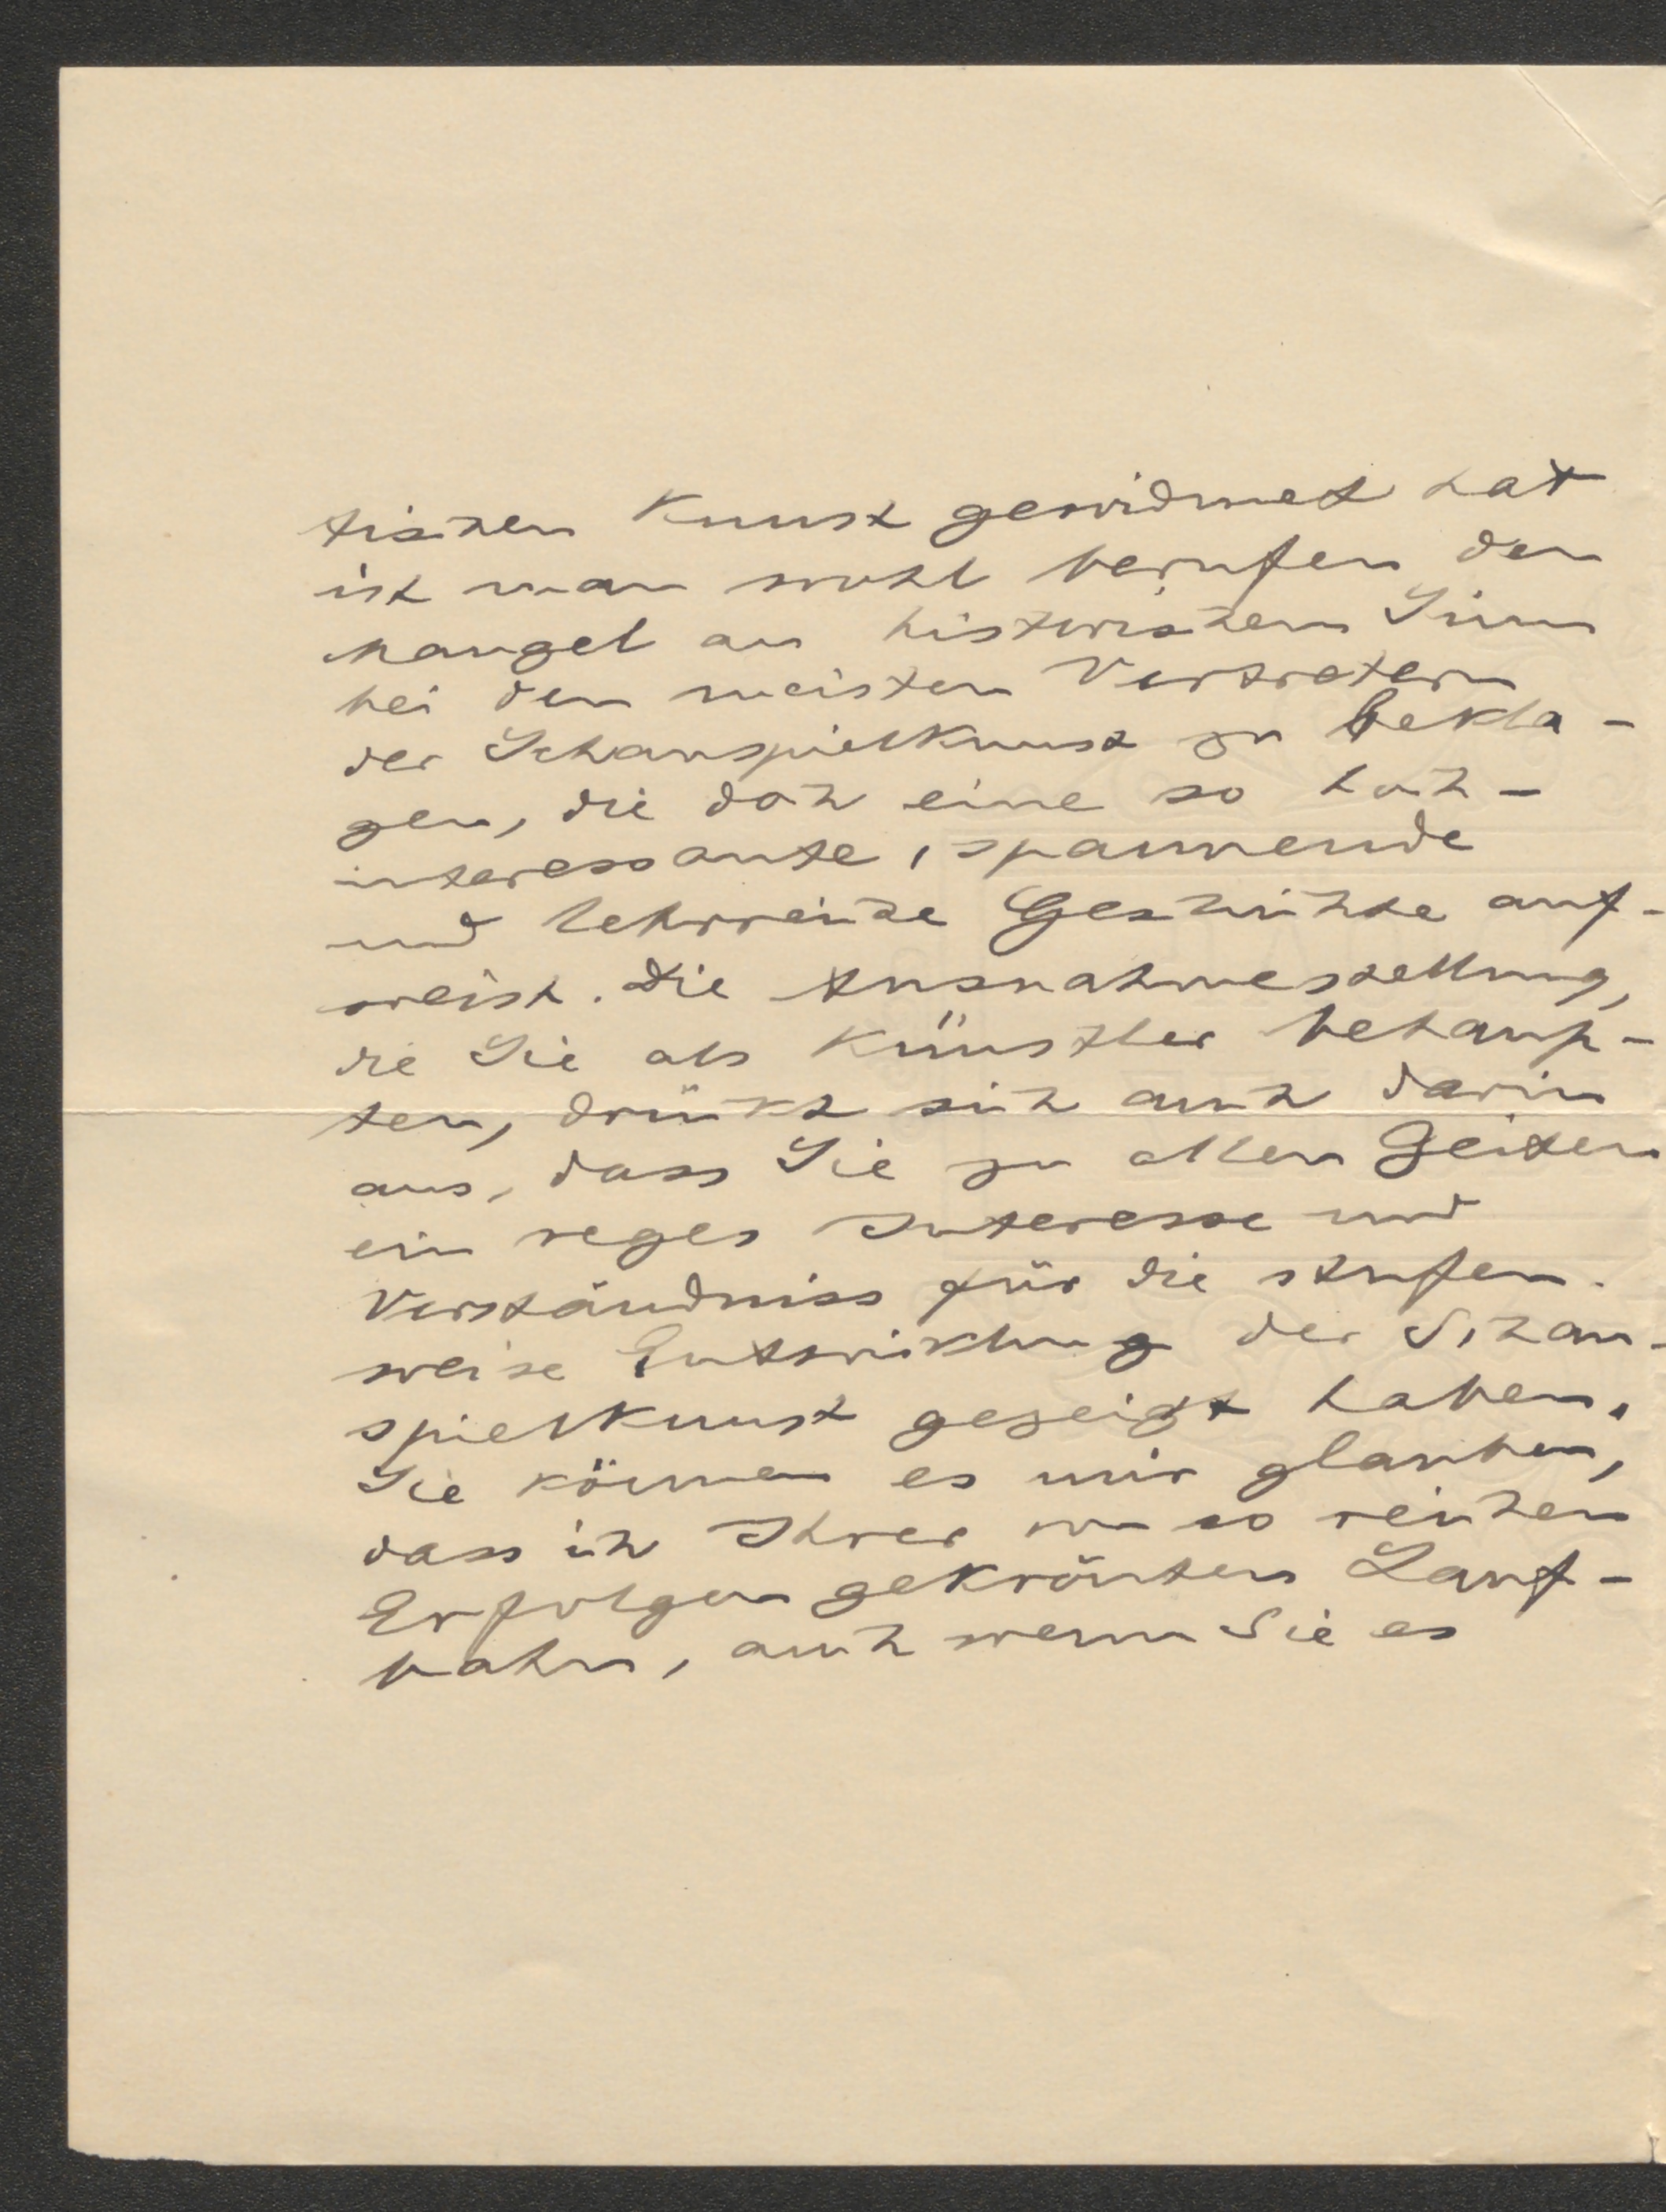 tischen Kunst gewidmet hat
ist man wohl berufen den
Mangel an historischem Sinn
bei den meisten Vertretern
der Schauspielkunst zu bekla-
gen, die doch eine so hoch-
interessante, spannende
und lehrreiche Geschichte auf-
weist. Die Ausnahmestellung,
die Sie als Künstler behaup-
ten, drückt sich auch darin
aus, dass Sie zu allen Zeiten
ein reges Interesse und
Verständniss für die stufen-
weise Entwicklung der Schau-
spielkunst gezeigt haben.
Sie können es mir glauben,
dass ich Ihrer von so reichen
Erfolgen gekrönten Lauf-
bahn, auch wenn Sie es